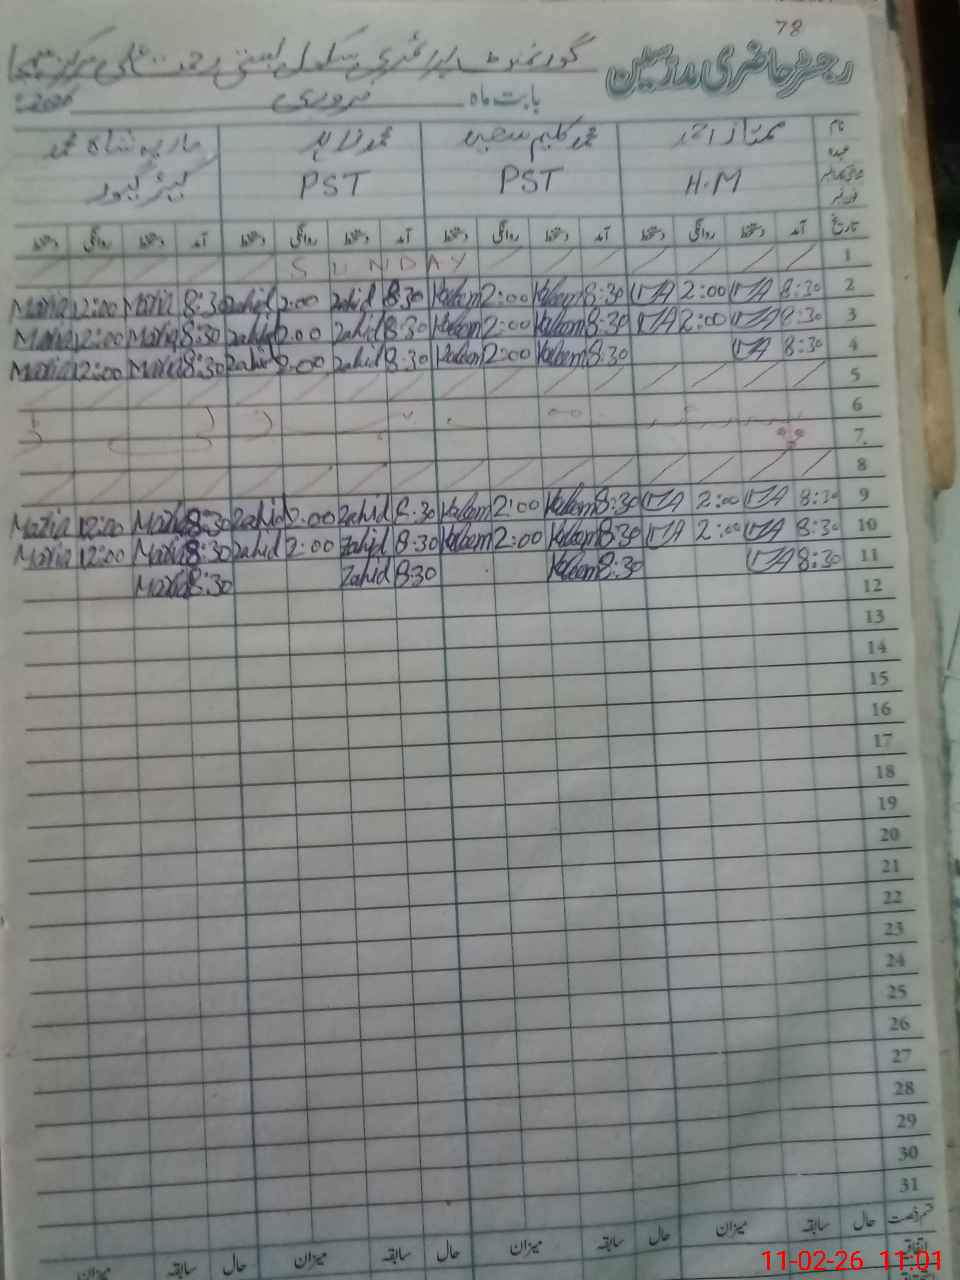 78
رجسٹر حاضری مدرسین گورنمنٹ پرائمری سکول بستی رحمت علی مرکز
بابت ماہ فروری
نام ممتاز احمد محمد کلیم سعید محمد زاہد ماریہ
عہدہ H.M PST PST کیئر گیور
تاریخ آمد دستخط روانگی دستخط آمد دستخط روانگی دستخط آمد دستخط روانگی دستخط آمد دستخط روانگی دستخط
1 SUNDAY
2 8:30 2:00 8:30 Kaleem 2:00 Kaleem 8:30 Zahid 2:00 Zahid 8:30 Maria 12:00 Maria
3 8:30 2:00 8:30 Kaleem 2:00 Kaleem 8:30 Zahid 2:00 Zahid 8:30 Maria 12:00 Maria
4 8:30 8:30 Kaleem 2:00 Kaleem 8:30 Zahid 2:00 Zahid 8:30 Maria 12:00 Maria
5
6
7
8
9 8:30 2:00 8:30 Kaleem 2:00 Kaleem 8:30 Zahid 2:00 Zahid 8:30 Maria 12:00 Maria
10 8:30 2:00 8:30 Kaleem 2:00 Kaleem 8:30 Zahid 2:00 Zahid 8:30 Maria 12:00 Maria
11 8:30 8:30 Kaleem 8:30 Zahid 8:30 Maria
12
13
14
15
16
17
18
19
20
21
22
23
24
25
26
27
28
29
30
31
قسم رخصت حال سابقہ میزان حال سابقہ میزان حال سابقہ میزان حال سابقہ میزان
اتفاقیہ
11-02-26 11:01